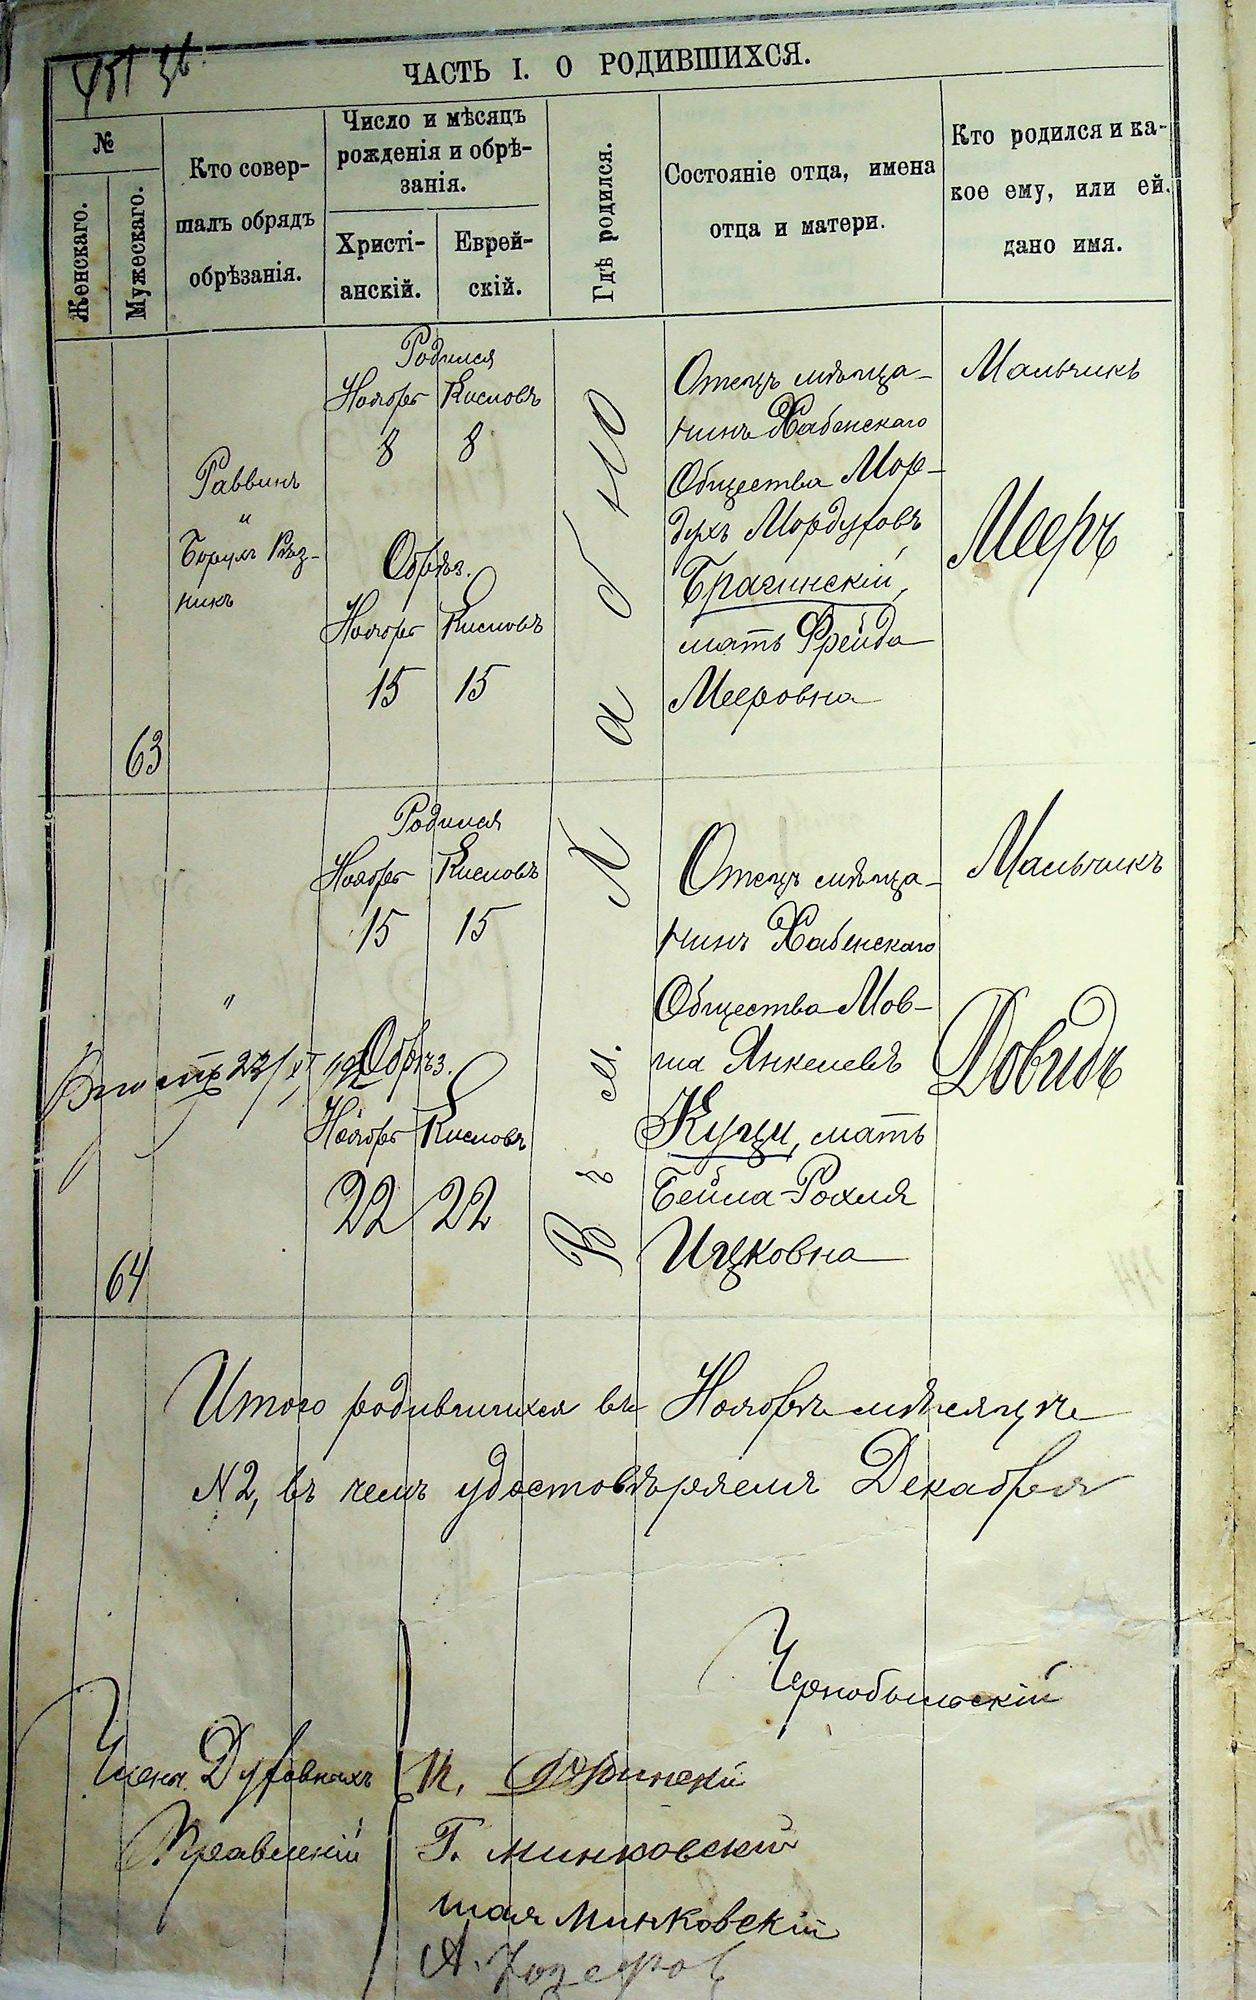 ЧАСТЬ I. О РОДИВШИХСЯ.
№
Женскаго.
Мужескаго.
Кто совер-
шалъ обрядъ
обрѣзанія.
Число и мѣсяцъ
рожденія и обрѣ-
занія.
Христі-
анскій.
Еврей-
скій.
Гдѣ родился.
Состояніе отца, имена
отца и матери.
Кто родился и ка-
кое ему, или ей,
дано имя.
63
Раввинъ
и
Борухъ Рѣз-
никъ
Родился
Ноября Кисловъ
8 8
Обрѣз.
Ноября Кисловъ
15 15
Въ м. Хабно
Отецъ мѣща-
нинъ Хабенскаго
Общества Мор-
духъ Мордуховъ
Брагинскій,
мать Фрейда
Мееровна
Мальчикъ
Мееръ
64
"
23/XI
Родился
Ноября Кисловъ
15 15
Обрѣз.
Ноября Кисловъ
22 22
Отецъ мѣща-
нинъ Хабенскаго
Общества Мов-
ша Янкелевъ
Куцъ, мать
Бейла-Рохля
Ицковна
Мальчикъ
Довидъ
Итого родившихся въ Ноябрѣ мѣсяцѣ
№2, въ чемъ удостовѣряемъ Декабря
Чернобыльскій
Члены Духовныхъ
Правленій
Г. Минковскій
Минковскій
А.